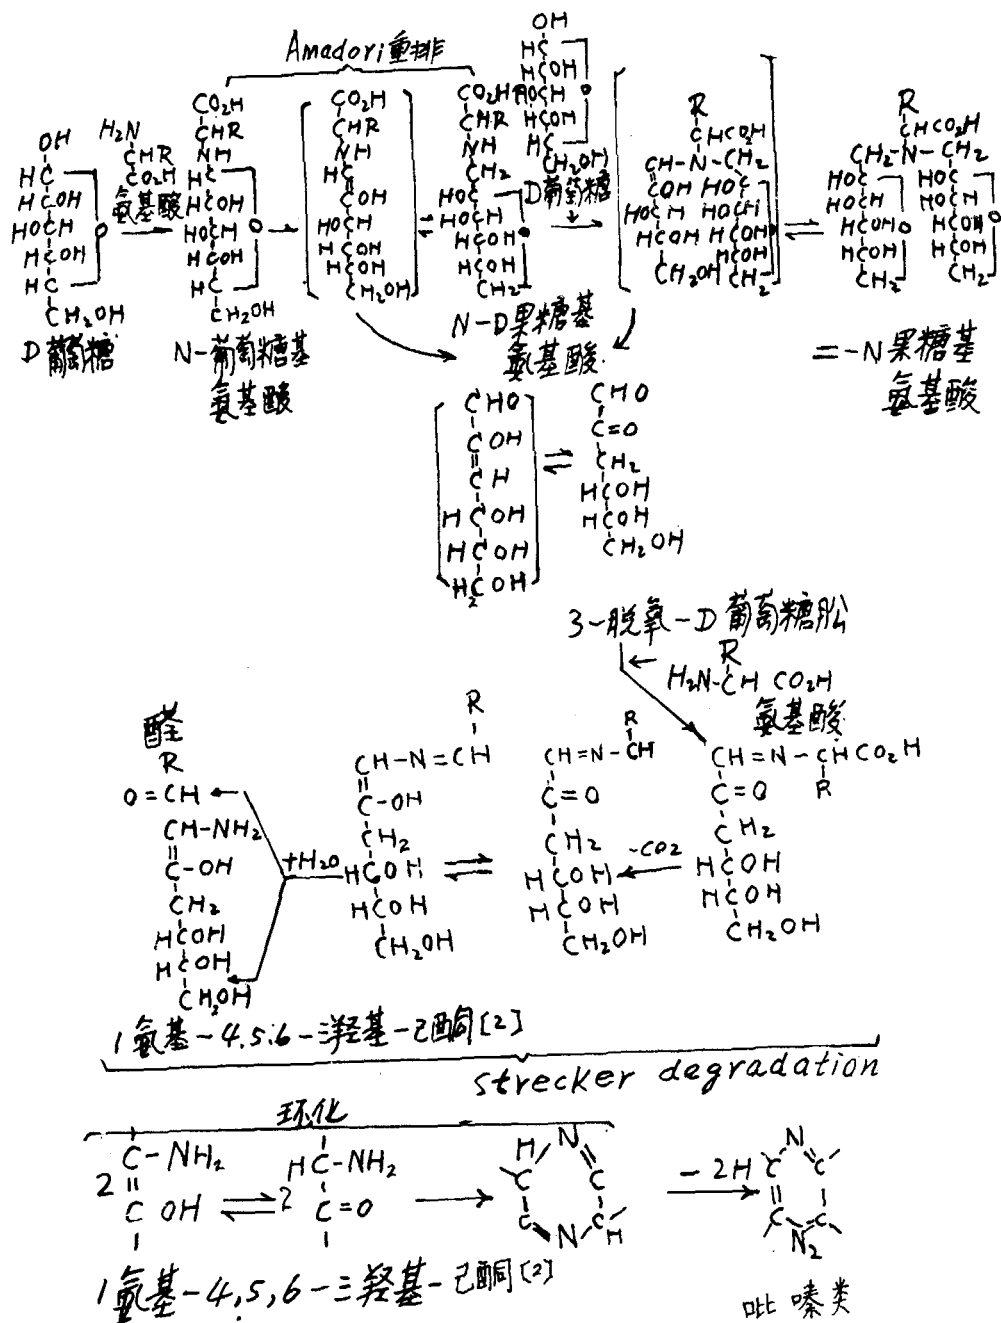 Amadori重排
OH
HC
HCOH
HOCH
HCOH
HC
CH2OH
D葡萄糖
H2N
CHR
CO2H
氨基酸
CO2H
CHR
NH
HC
HCOH
HOCH
HCOH
HC
CH2OH
N-葡萄糖基
氨基酸
CO2H
CHR
NH
HC
COH
HOCH
HCOH
HCOH
CH2OH
CO2H
CHR
NH
CH2
HOC
HOCH
HCOH
HCOH
CH2
N-D果糖基
氨基酸
OH
HC
HCOH
HOCH
HCOH
HC
CH2OH
D葡萄糖
R
CHCO2H
CH-N-CH2
COH HOC
HOCH HOCH
HCOH HCOH
CH2OH HCOH
CH2
R
CHCO2H
CH2-N-CH2
HOC HOC
HOCH HOCH
HCOH HCOH
HCOH HCOH
CH2 CH2
二-N果糖基
氨基酸
CHO
COH
CH
HCOH
HCOH
H2COH
CHO
C=O
CH2
HCOH
HCOH
CH2OH
3-脱氧-D葡萄糖肸
R
H2N-CH CO2H
氨基酸
CH=N-CHCO2H
R
C=O
CH2
HCOH
HCOH
CH2OH
-CO2
R
CH=N-CH
C=O
CH2
HCOH
HCOH
CH2OH
R
CH-N=CH
C-OH
CH2
HCOH
HCOH
CH2OH
+H2O
醛
R
O=CH
CH-NH2
C-OH
CH2
HCOH
HCOH
CH2OH
1氨基-4.5.6-三羟基-己酮[2]
strecker degradation
环化
C-NH2
2
C OH
HC-NH2
2
C=O
H N
C C
C N C H
-2H
N
C C
C C
N2
1氨基-4,5,6-三羟基-己酮[2]
吡嗪类